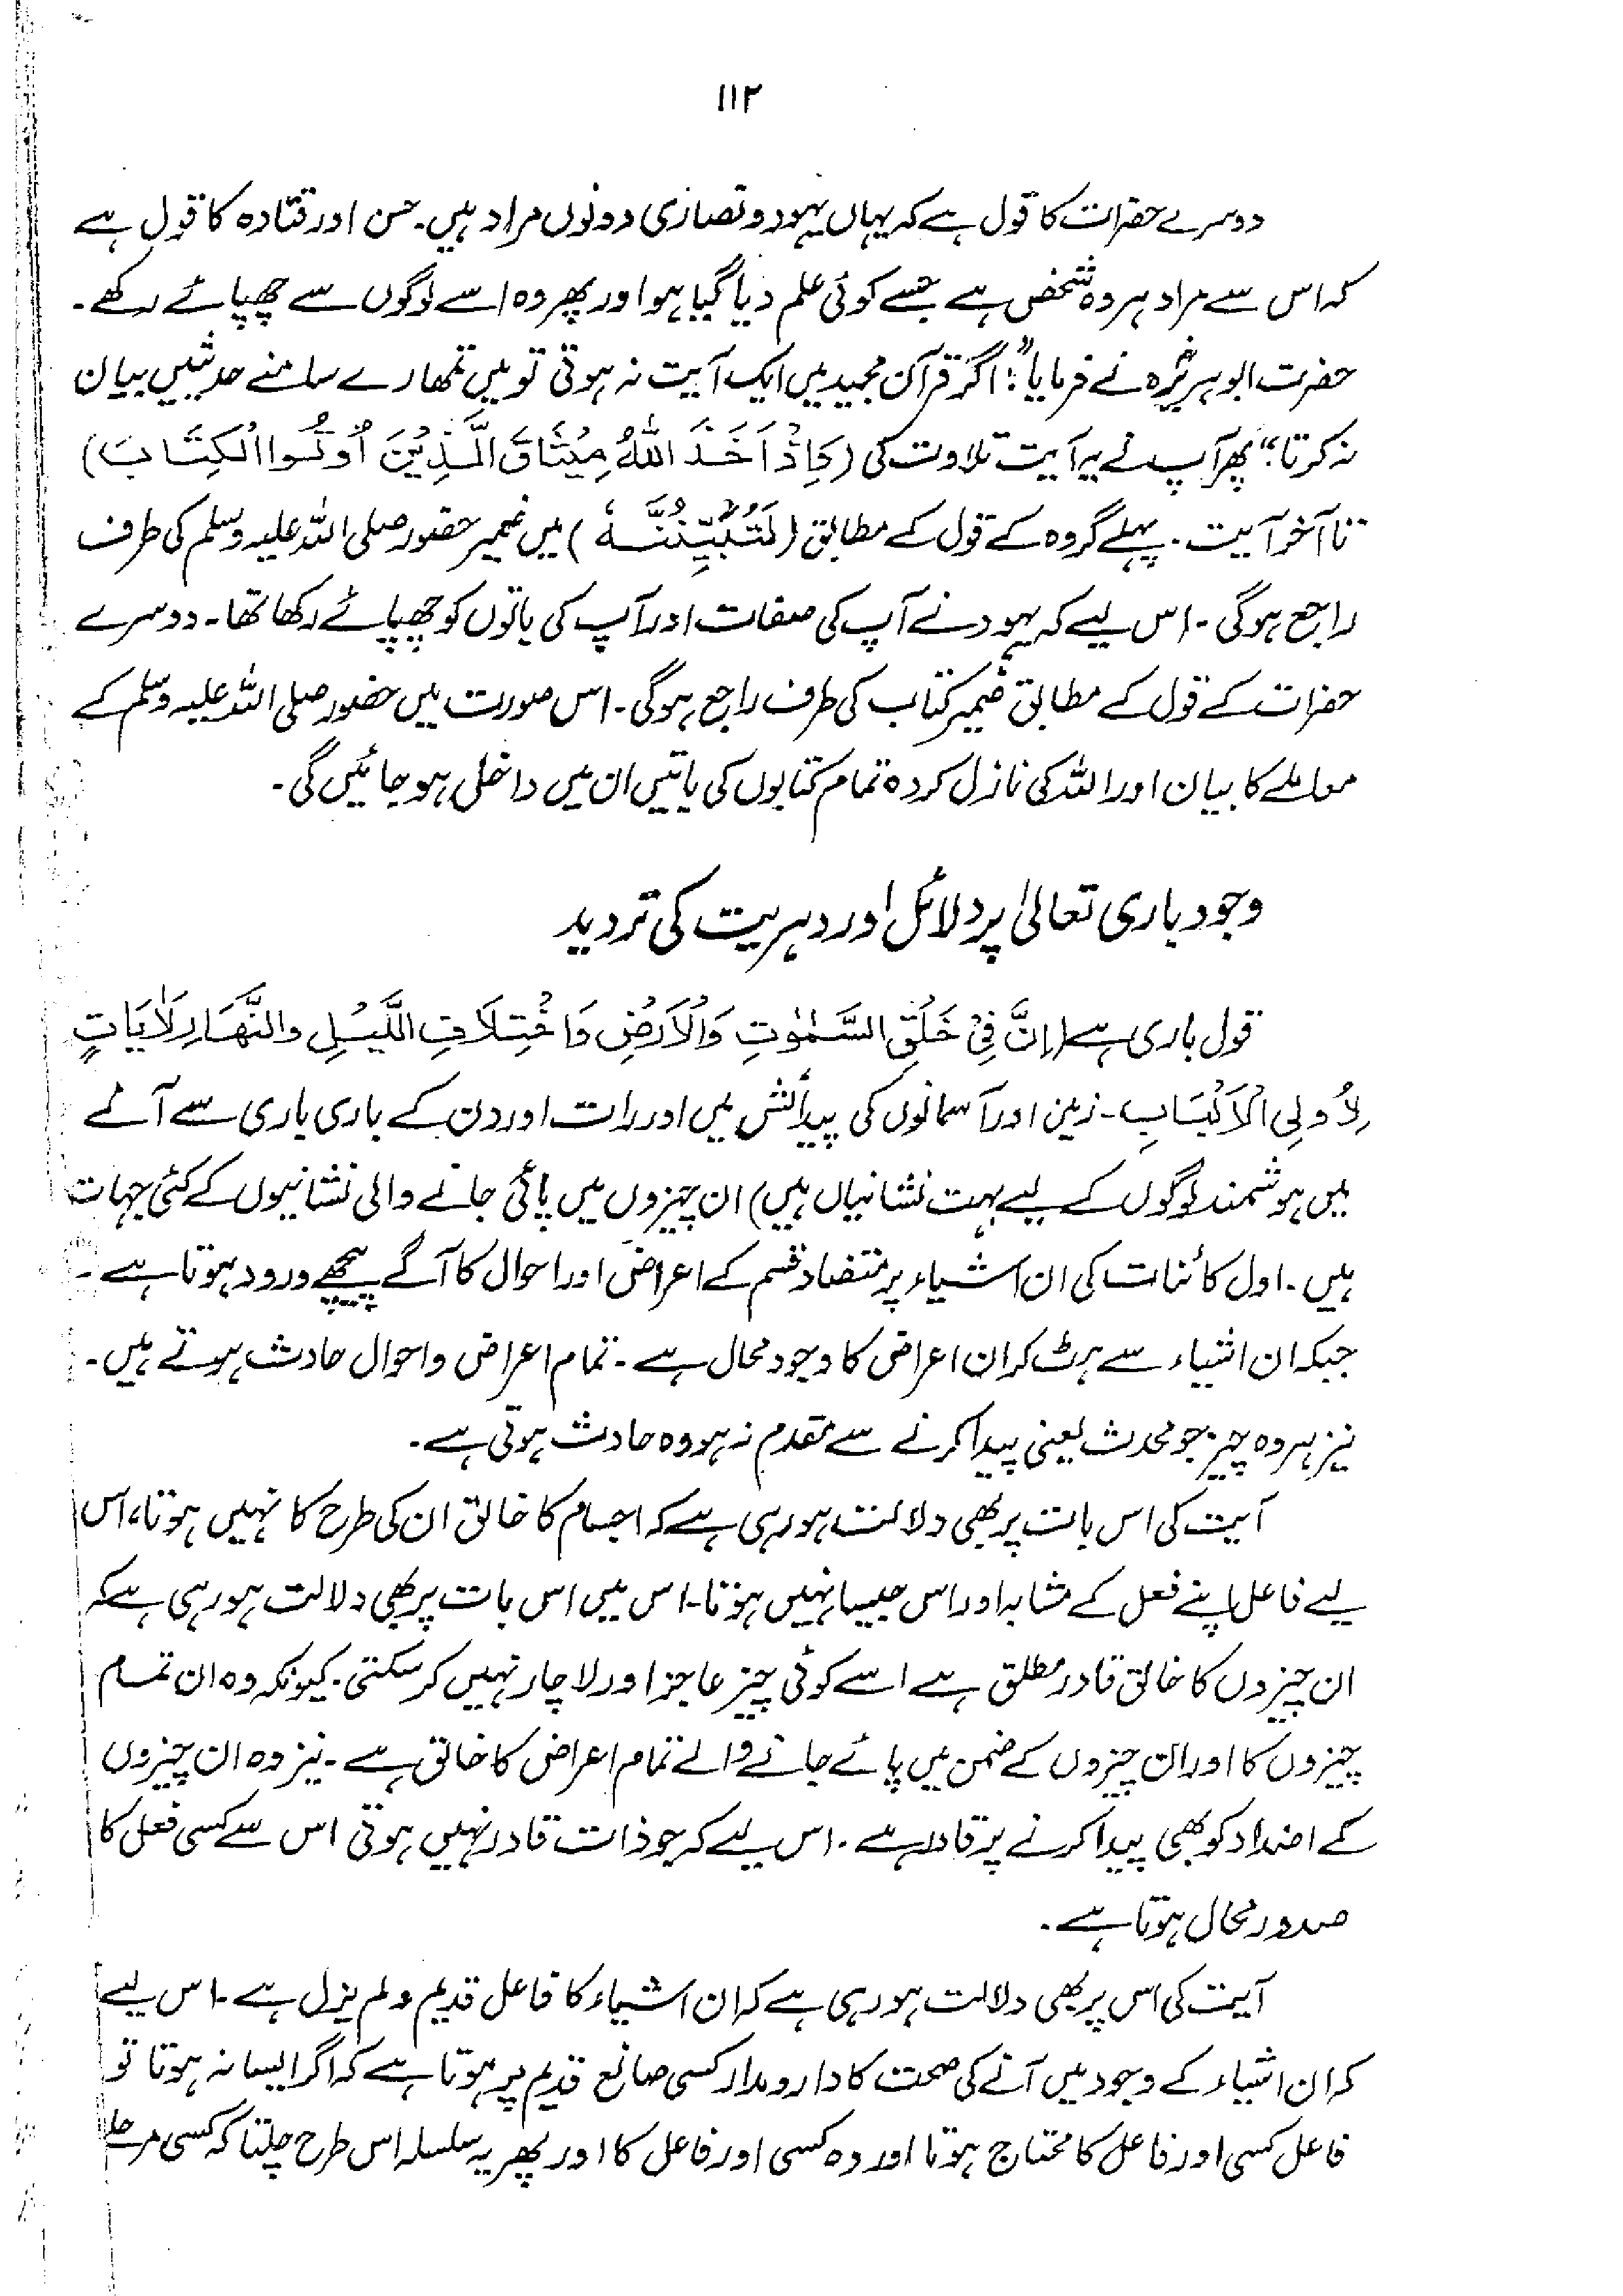 ۱۱۲
دوسرے حضرات کا قول ہے کہ یہاں یہود و نصاریٰ دونوں مراد ہیں۔ حسن اور قتادہ کا قول ہے
کہ اس سے مراد ہر وہ شخص ہے جسے کوئی علم دیا گیا ہو اور پھر وہ اسے لوگوں سے چھپائے رکھے۔
حضرت ابوہریرہؓ نے فرمایا: "اگر قرآن مجید میں ایک آیت نہ ہوتی تو میں تمھارے سامنے حدیثیں بیان
نہ کرتا؛" پھر آپ نے یہ آیت تلاوت کی (وَاِذْ اَخَذَ اللّٰهُ مِيْثَاقَ الَّذِيْنَ اُوْتُوا الْكِتَابَ)
تا آخر آیت۔ پہلے گروہ کے قول کے مطابق (لَتُبَيِّنُنَّهٗ) میں ضمیر حضور صلی اللہ علیہ وسلم کی طرف
راجع ہوگی۔ اس لیے کہ یہود نے آپ کی صفات اور آپ کی باتوں کو چھپائے رکھا تھا۔ دوسرے
حضرات کے قول کے مطابق ضمیر کتاب کی طرف راجع ہوگی۔ اس صورت میں حضور صلی اللہ علیہ وسلم کے
معاملے کا بیان اور اللہ کی نازل کردہ تمام کتابوں کی باتیں ان میں داخل ہو جائیں گی۔
وجود باری تعالیٰ پر دلائل اور دہریت کی تردید
قول باری ہے (اِنَّ فِيْ خَلْقِ السَّمٰوٰتِ وَالْاَرْضِ وَاخْتِلَافِ اللَّيْلِ وَالنَّهَارِ لَاٰيَاتٍ
لِاُولِي الْاَلْبَابِ۔ زمین اور آسمانوں کی پیدائش میں اور رات اور دن کے باری باری سے آنے
میں ہوشمند لوگوں کے لیے بہت نشانیاں ہیں) ان چیزوں میں پائی جانے والی نشانیوں کے کئی جہات
ہیں۔ اول کائنات کی ان اشیاء پر متضاد قسم کے اعراض اور احوال کا آگے پیچھے ورود ہوتا ہے۔
جبکہ ان اشیاء سے ہٹ کر ان اعراض کا وجود محال ہے۔ تمام اعراض و احوال حادث ہوتے ہیں۔
نیز ہر وہ چیز جو محدث یعنی پیدا کرنے سے مقدم نہ ہو وہ حادث ہوتی ہے۔
آیت کی اس بات پر بھی دلالت ہو رہی ہے کہ اجسام کا خالق ان کی طرح کا نہیں ہوتا، اس
لیے فاعل اپنے فعل کے مشابہ اور اس جیسا نہیں ہوتا۔ اس میں اس بات پر بھی دلالت ہو رہی ہے کہ
ان چیزوں کا خالق قادر مطلق ہے اسے کوئی چیز عاجز اور لاچار نہیں کر سکتی۔ کیونکہ وہ ان تمام
چیزوں کا اور ان چیزوں کے ضمن میں پائے جانے والے تمام اعراض کا خالق ہے۔ نیز وہ ان چیزوں
کے اضداد کو بھی پیدا کرنے پر قادر ہے۔ اس لیے کہ جو ذات قادر نہیں ہوتی اس سے کسی فعل کا
صدور محال ہوتا ہے۔
آیت کی اس پر بھی دلالت ہو رہی ہے کہ ان اشیاء کا فاعل قدیم و لم یزل ہے۔ اس لیے
کہ ان اشیاء کے وجود میں آنے کی صحت کا دارومدار کسی صانع قدیم پر ہوتا ہے کہ اگر ایسا نہ ہوتا تو
فاعل کسی اور فاعل کا محتاج ہوتا اور وہ کسی اور فاعل کا اور پھر یہ سلسلہ اس طرح چلتا کہ کسی مرحلے